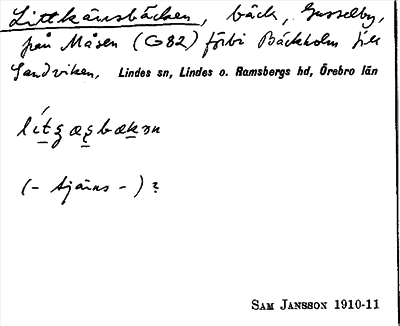 Littkärnsbäcken, bäck, Gusselby,
från Måsen (G82) förbi Bäckholm till
Sandviken. Lindes sn, Lindes o. Ramsbergs hd, Örebro län
(- tjärns -) ?
SAM JANSSON 1910-11